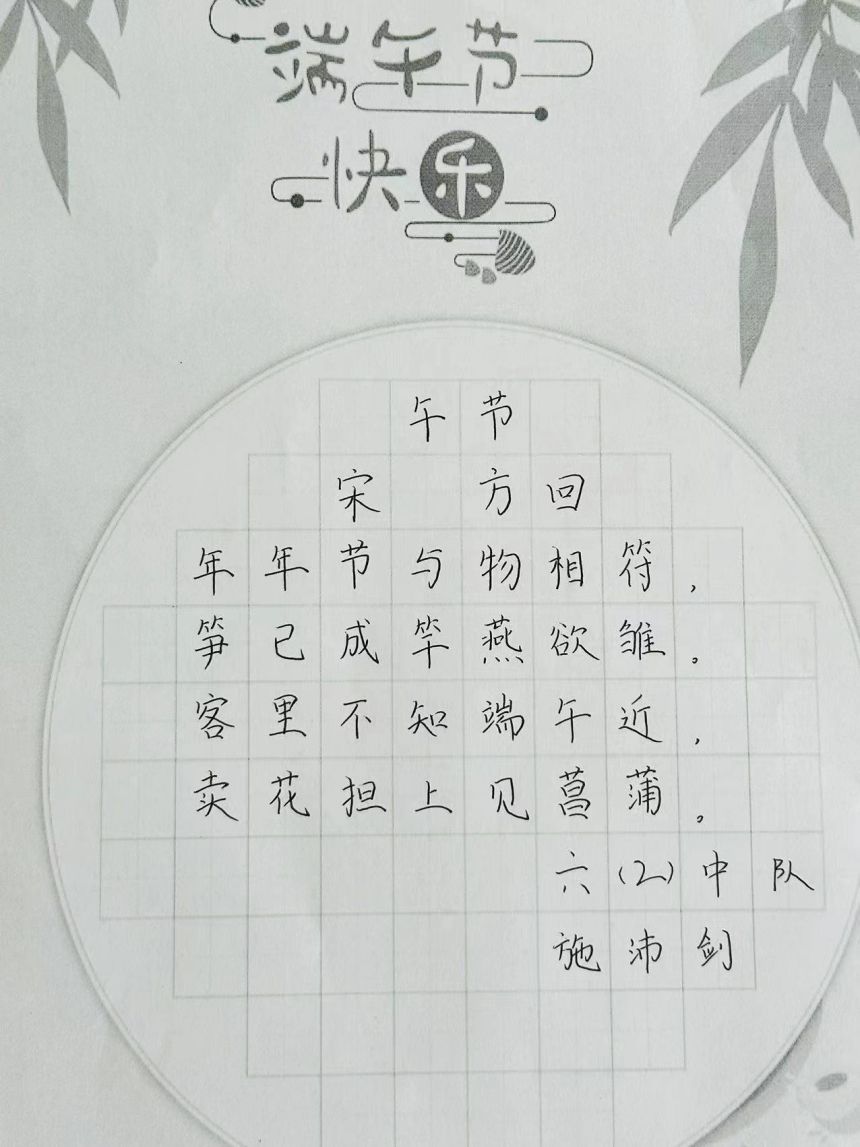 端午节
快乐
午节
宋 方回
年年节与物相符，
笋已成竿燕欲雏。
客里不知端午近，
卖花担上见菖蒲。
六(2)中队
施沛剑